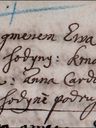 gmenem Ewa
hodyny: kmo
Anna Carde
hodyně podru